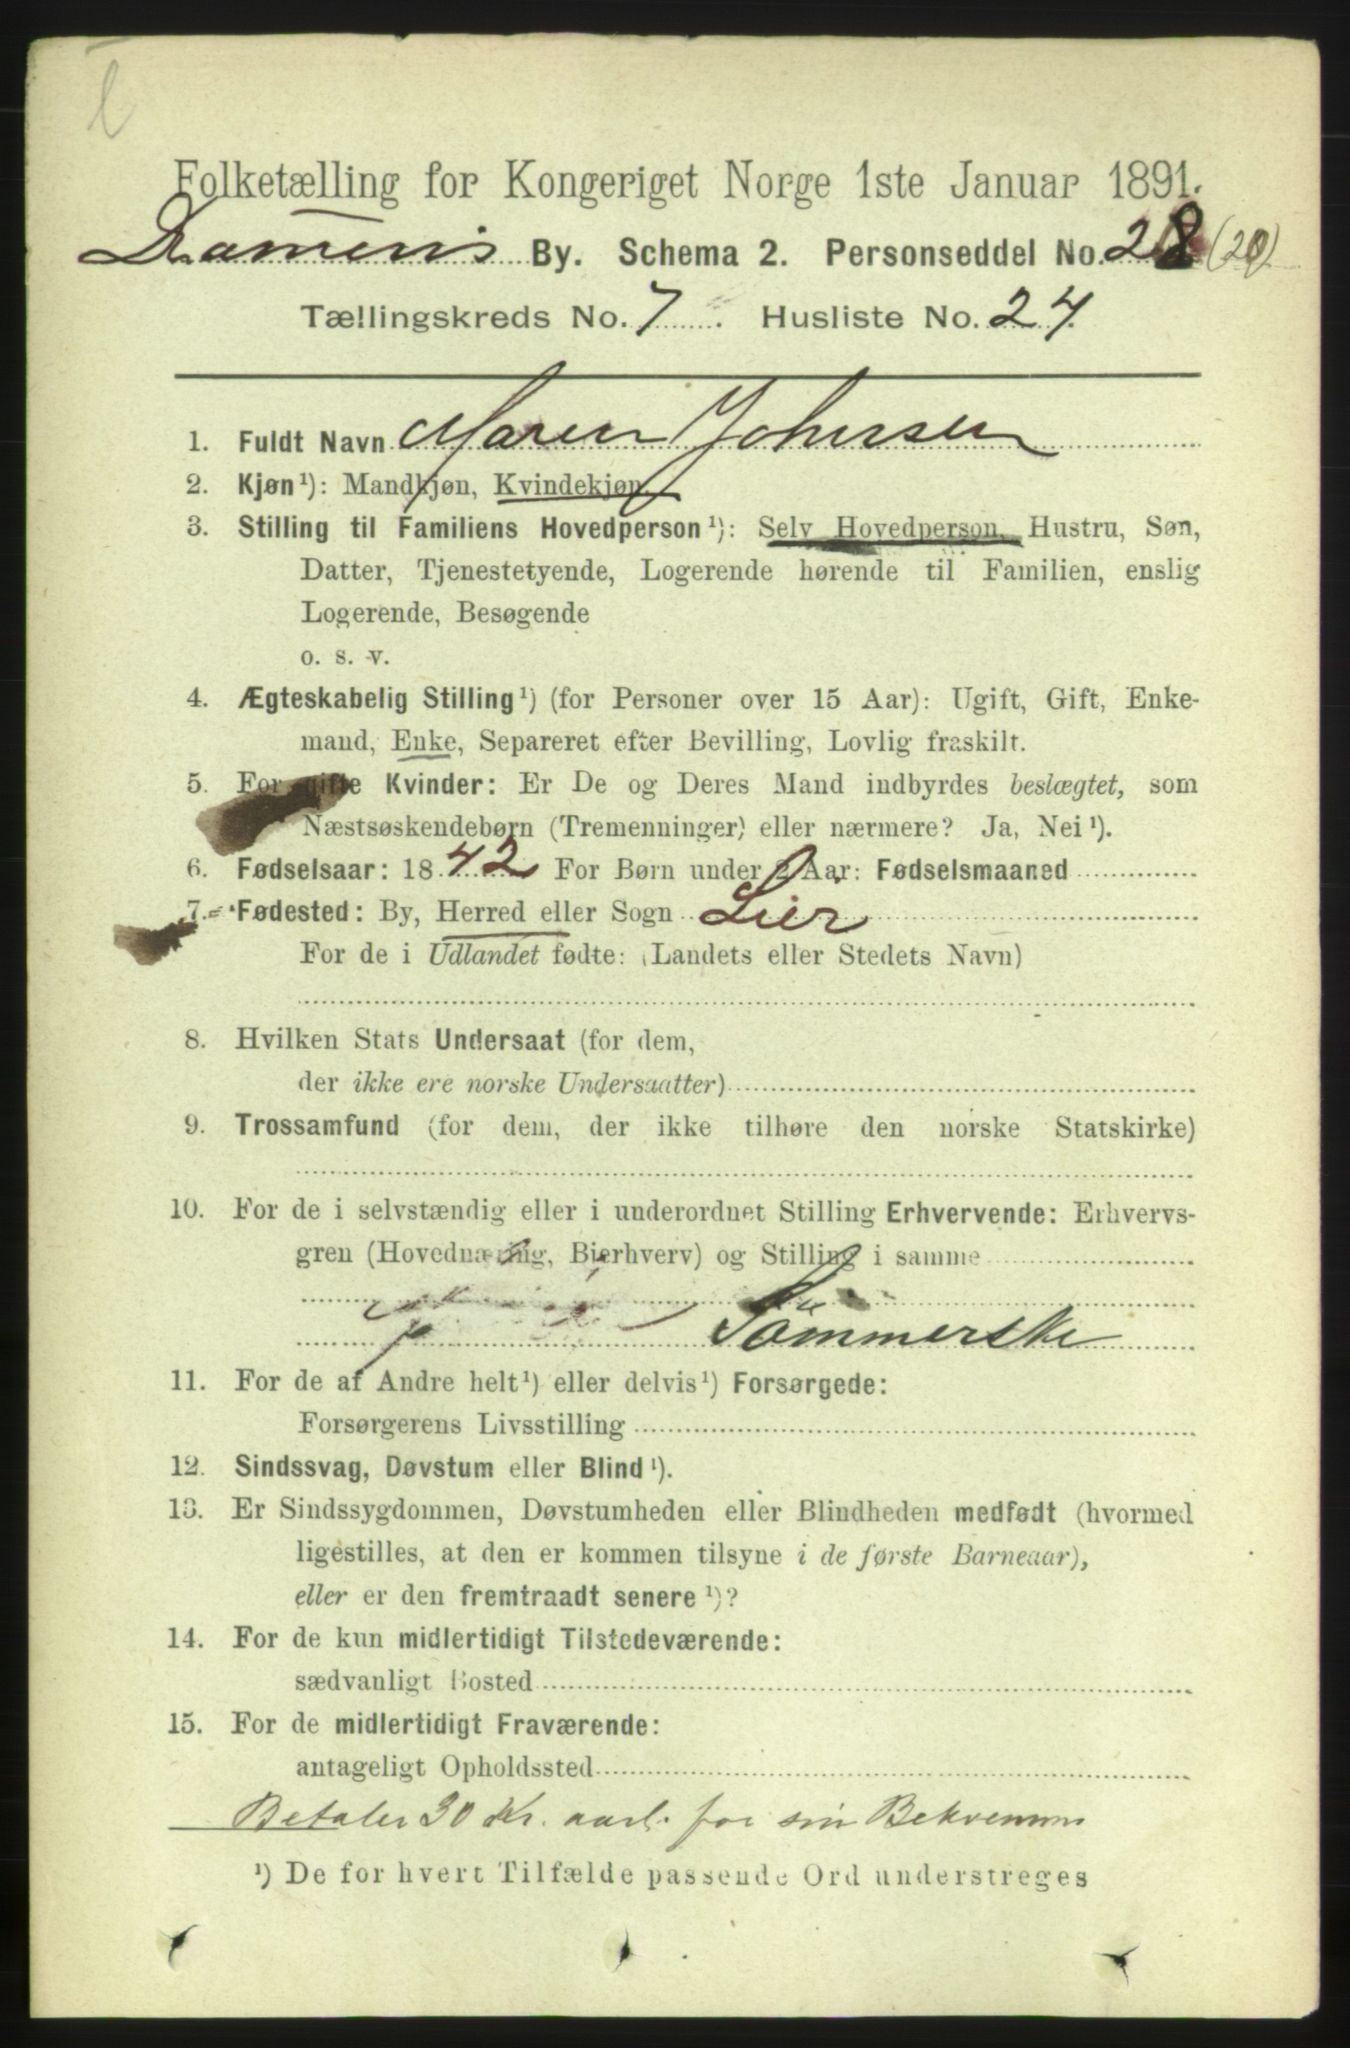 Folketælling for Kongeriget Norge 1ste Januar 1891.
Dramens By. Schema 2. Personseddel No. 28 (20)
Tællingskreds No. 7. Husliste No. 24.
1. Fuldt Navn Maren Johnsen
2. Kjøn¹): Mandkjøn, Kvindekjøn.
3. Stilling til Familiens Hovedperson¹): Selv Hovedperson, Hustru, Søn,
Datter, Tjenestetyende, Logerende hørende til Familien, enslig
Logerende, Besøgende
o. s. v.
4. Ægteskabelig Stilling¹) (for Personer over 15 Aar): Ugift, Gift, Enke-
mand, Enke, Separeret efter Bevilling, Lovlig fraskilt.
5. For gifte Kvinder: Er De og Deres Mand indbyrdes beslægtet, som
Næstsøskendebørn (Tremenninger) eller nærmere? Ja, Nei¹).
6. Fødselsaar: 1842 For Børn under 2 Aar: Fødselsmaaned
7. Fødested: By, Herred eller Sogn Lier
For de i Udlandet fødte: (Landets eller Stedets Navn)
8. Hvilken Stats Undersaat (for dem,
der ikke ere norske Undersaatter)
9. Trossamfund (for dem, der ikke tilhøre den norske Statskirke)
10. For de i selvstændig eller i underordnet Stilling Erhvervende: Erhvervs-
gren (Hovednæring, Bierhverv) og Stilling i samme
Sömmerske
11. For de af Andre helt¹) eller delvis¹) Forsørgede:
Forsørgerens Livsstilling
12. Sindssvag, Døvstum eller Blind¹).
13. Er Sindssygdommen, Døvstumheden eller Blindheden medfødt (hvormed
ligestilles, at den er kommen tilsyne i de første Barneaar),
eller er den fremtraadt senere¹)?
14. For de kun midlertidigt Tilstedeværende:
sædvanligt Bosted
15. For de midlertidigt Fraværende:
antageligt Opholdssted
Betaler 30 Kr. aarl. for sin
¹) De for hvert Tilfælde passende Ord understreges